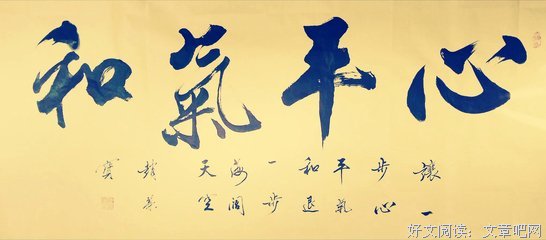 心平氣和
讓一
步心
平氣
和退
一步
海闊
天空
好文阅读：文章吧网